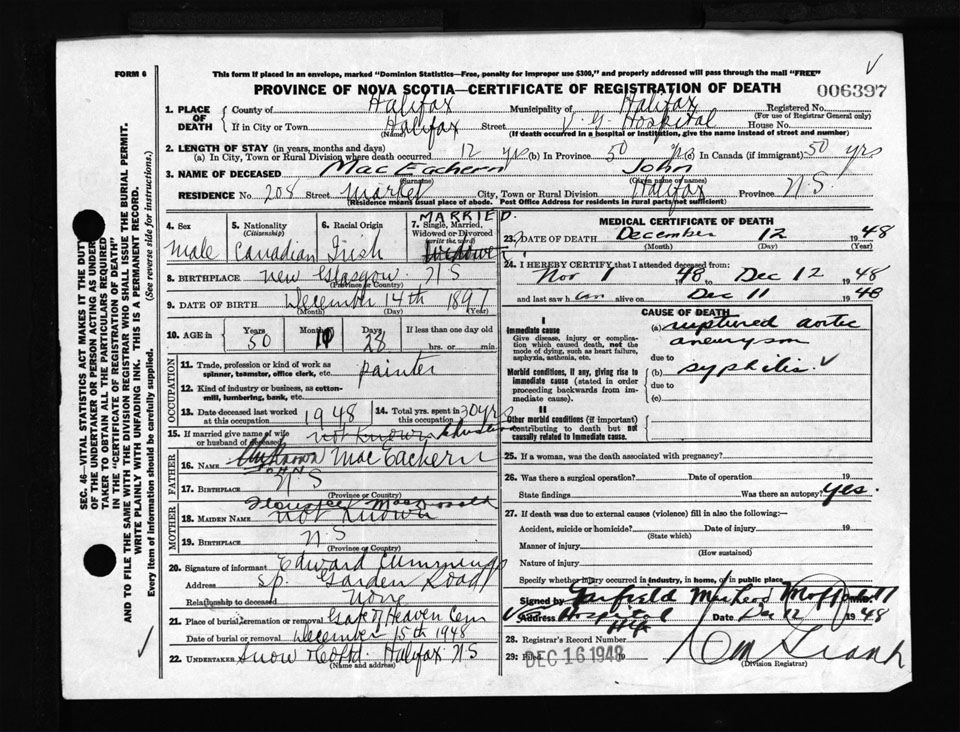 FORM 6
This form if placed in an envelope, marked "Dominion Statistics—Free, penalty for improper use $300," and properly addressed will pass through the mail "FREE"
PROVINCE OF NOVA SCOTIA—CERTIFICATE OF REGISTRATION OF DEATH
006397
1. PLACE OF DEATH
County of Halifax Municipality of Halifax Registered No.
(For use of Registrar General only)
If in City or Town Halifax Street V. G. Hospital House No.
(Name) (If death occurred in a hospital or institution, give the name instead of street and number)
2. LENGTH OF STAY (in years, months and days)
(a) In City, Town or Rural Division where death occurred 12 yrs (b) In Province 50 yrs (c) In Canada (if immigrant) 50 yrs
3. NAME OF DECEASED MacEachern John
(Surname) (Given name or names)
RESIDENCE No. 208 Street Market City, Town or Rural Division Halifax Province N.S.
(Residence means usual place of abode. Post Office Address for residents in rural parts not sufficient)
4. Sex
male
5. Nationality
(Citizenship)
Canadian
6. Racial Origin
Irish
MARRIED.
7. Single, Married, Widowed or Divorced
(write the word)
8. BIRTHPLACE New Glasgow. NS
(Province or Country)
9. DATE OF BIRTH December 14th 1897
(Month) (Day) (Year)
10. AGE in
Years
50
Months
Days
28
If less than one day old
hrs. or min.
OCCUPATION
11. Trade, profession or kind of work as spinner, teamster, office clerk, etc. painter
12. Kind of industry or business, as cotton-mill, lumbering, bank, etc.
13. Date deceased last worked at this occupation 1948
14. Total yrs. spent in this occupation 30 yrs
15. If married give name of wife or husband of deceased not known
FATHER
16. NAME Unknown MacEachern
JOHN
17. BIRTHPLACE N S
(Province or Country)
MOTHER
MacDonald
18. MAIDEN NAME not known
19. BIRTHPLACE N S
(Province or Country)
20. Signature of informant Edward Cummings
Address Sp. Garden Road
Relationship to deceased none
21. Place of burial, cremation or removal Gate of Heaven Cem
Date of burial or removal December 15th 1948
22. UNDERTAKER Snow & Co Ltd. Halifax NS
(Name and address)
MEDICAL CERTIFICATE OF DEATH
23. DATE OF DEATH December 12 1948
(Month) (Day) (Year)
24. I HEREBY CERTIFY that I attended deceased from:
Nov 1 48 to Dec 12 1948
and last saw him alive on Dec 11 1948
CAUSE OF DEATH
I
Immediate cause
Give disease, injury or complication which caused death, not the mode of dying, such as heart failure, asphyxia, asthenia, etc.
(a) ruptured aortic aneurysm
due to
Morbid conditions, if any, giving rise to immediate cause (stated in order proceeding backwards from immediate cause).
(b) syphilis.
due to
(c)
II
Other morbid conditions (if important) contributing to death but not causally related to immediate cause.
25. If a woman, was the death associated with pregnancy?
26. Was there a surgical operation? Date of operation 19
State findings Was there an autopsy? yes.
27. If death was due to external causes (violence) fill in also the following:—
Accident, suicide or homicide? Date of injury 19
(State which)
Manner of injury
(How sustained)
Nature of injury
Specify whether injury occurred in industry, in home, or in public place
Signed by Garfield MacLeod Moffatt
Address V G Hospital Hfx Date Dec 12 1948
28. Registrar's Record Number
29. Filed DEC 16 1948 19
(Division Registrar)
SEC. 46—VITAL STATISTICS ACT MAKES IT THE DUTY OF THE UNDERTAKER OR PERSON ACTING AS UNDERTAKER TO OBTAIN ALL THE PARTICULARS REQUIRED IN THE "CERTIFICATE OF REGISTRATION OF DEATH" AND TO FILE THE SAME WITH THE DIVISION REGISTRAR WHO SHALL ISSUE THE BURIAL PERMIT.
WRITE PLAINLY WITH UNFADING INK. THIS IS A PERMANENT RECORD.
Every item of information should be carefully supplied. (See reverse side for instructions.)